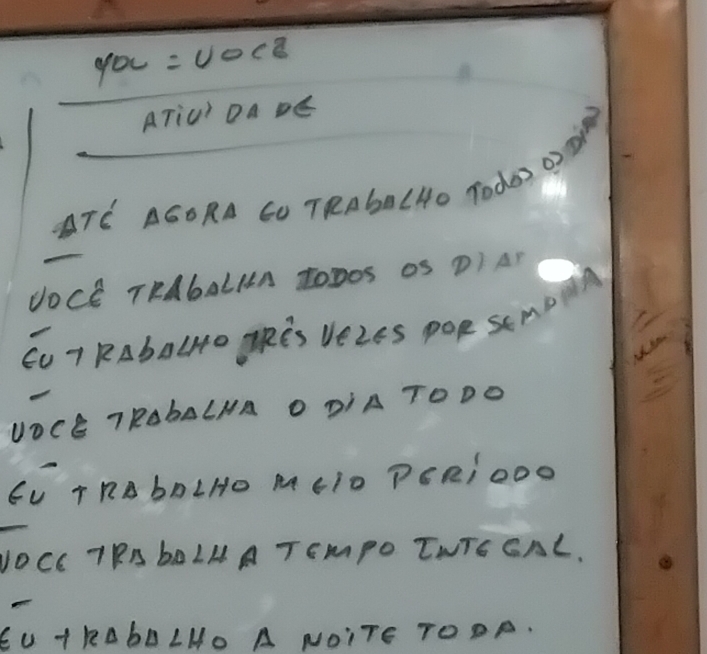 YOU = VOCÊ
ATIVIDADE
ATÉ AGORA EU TRABALHO TODOS OS DIAS
VOCÊ TRABALHA TODOS OS DIAS
EU TRABALHO TRÊS VEZES POR SEMANA
VOCÊ TRABALHA O DIA TODO
EU TRABALHO MEIO PERÍODO
VOCE TRABALHA TEMPO INTEGAL.
EU TRABALHO A NOITE TODA.